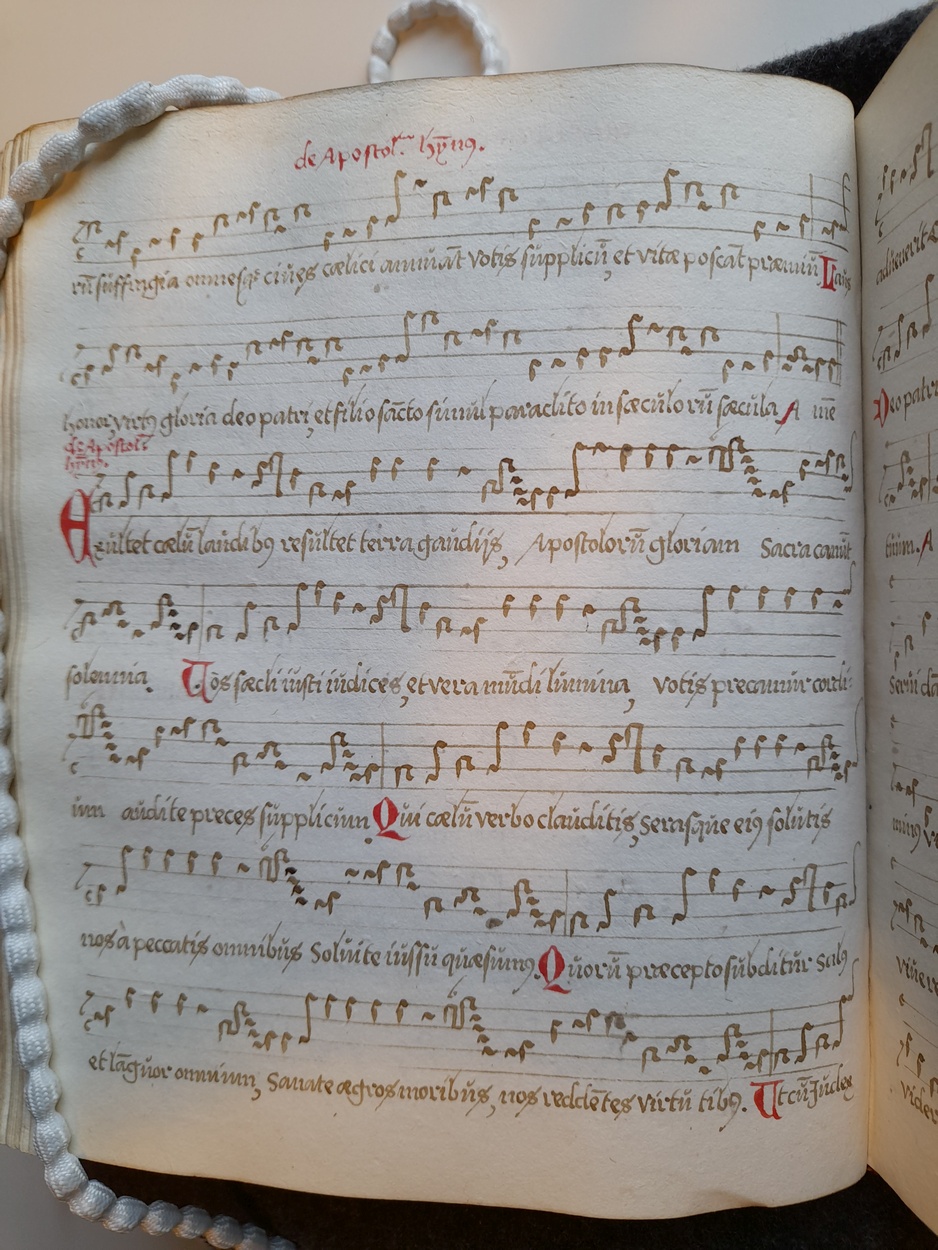 de Apostol. hym̄9.
rū suffragia omnesq3 ciues cælici annuāt votis supplicū, et vitæ poscāt præmiū Laus
honor, virt9 gloria deo patri, et filio sācto simul paraclito in sæculorū sæcula A me
de Apostol.
hym̄9.
Exultet cælū laudib9 resultet terra gaudijs, Apostolorū gloriam Sacra canūt
solemnia. Uos sæcli iusti iudices, et vera mūdi lumina, votis precamur cordi-
um audite preces supplicum. Qui cælū verbo clauditis, Serasque ei9 soluitis
nos à peccatis omnibus Soluite iussu quæsum9. Quorū præcepto subditur Sal9
et lāguor omnium, Sanate ægros moribus, nos reddētes virtutib9. Ut cū Judex
aduenerit
Deo patri
A